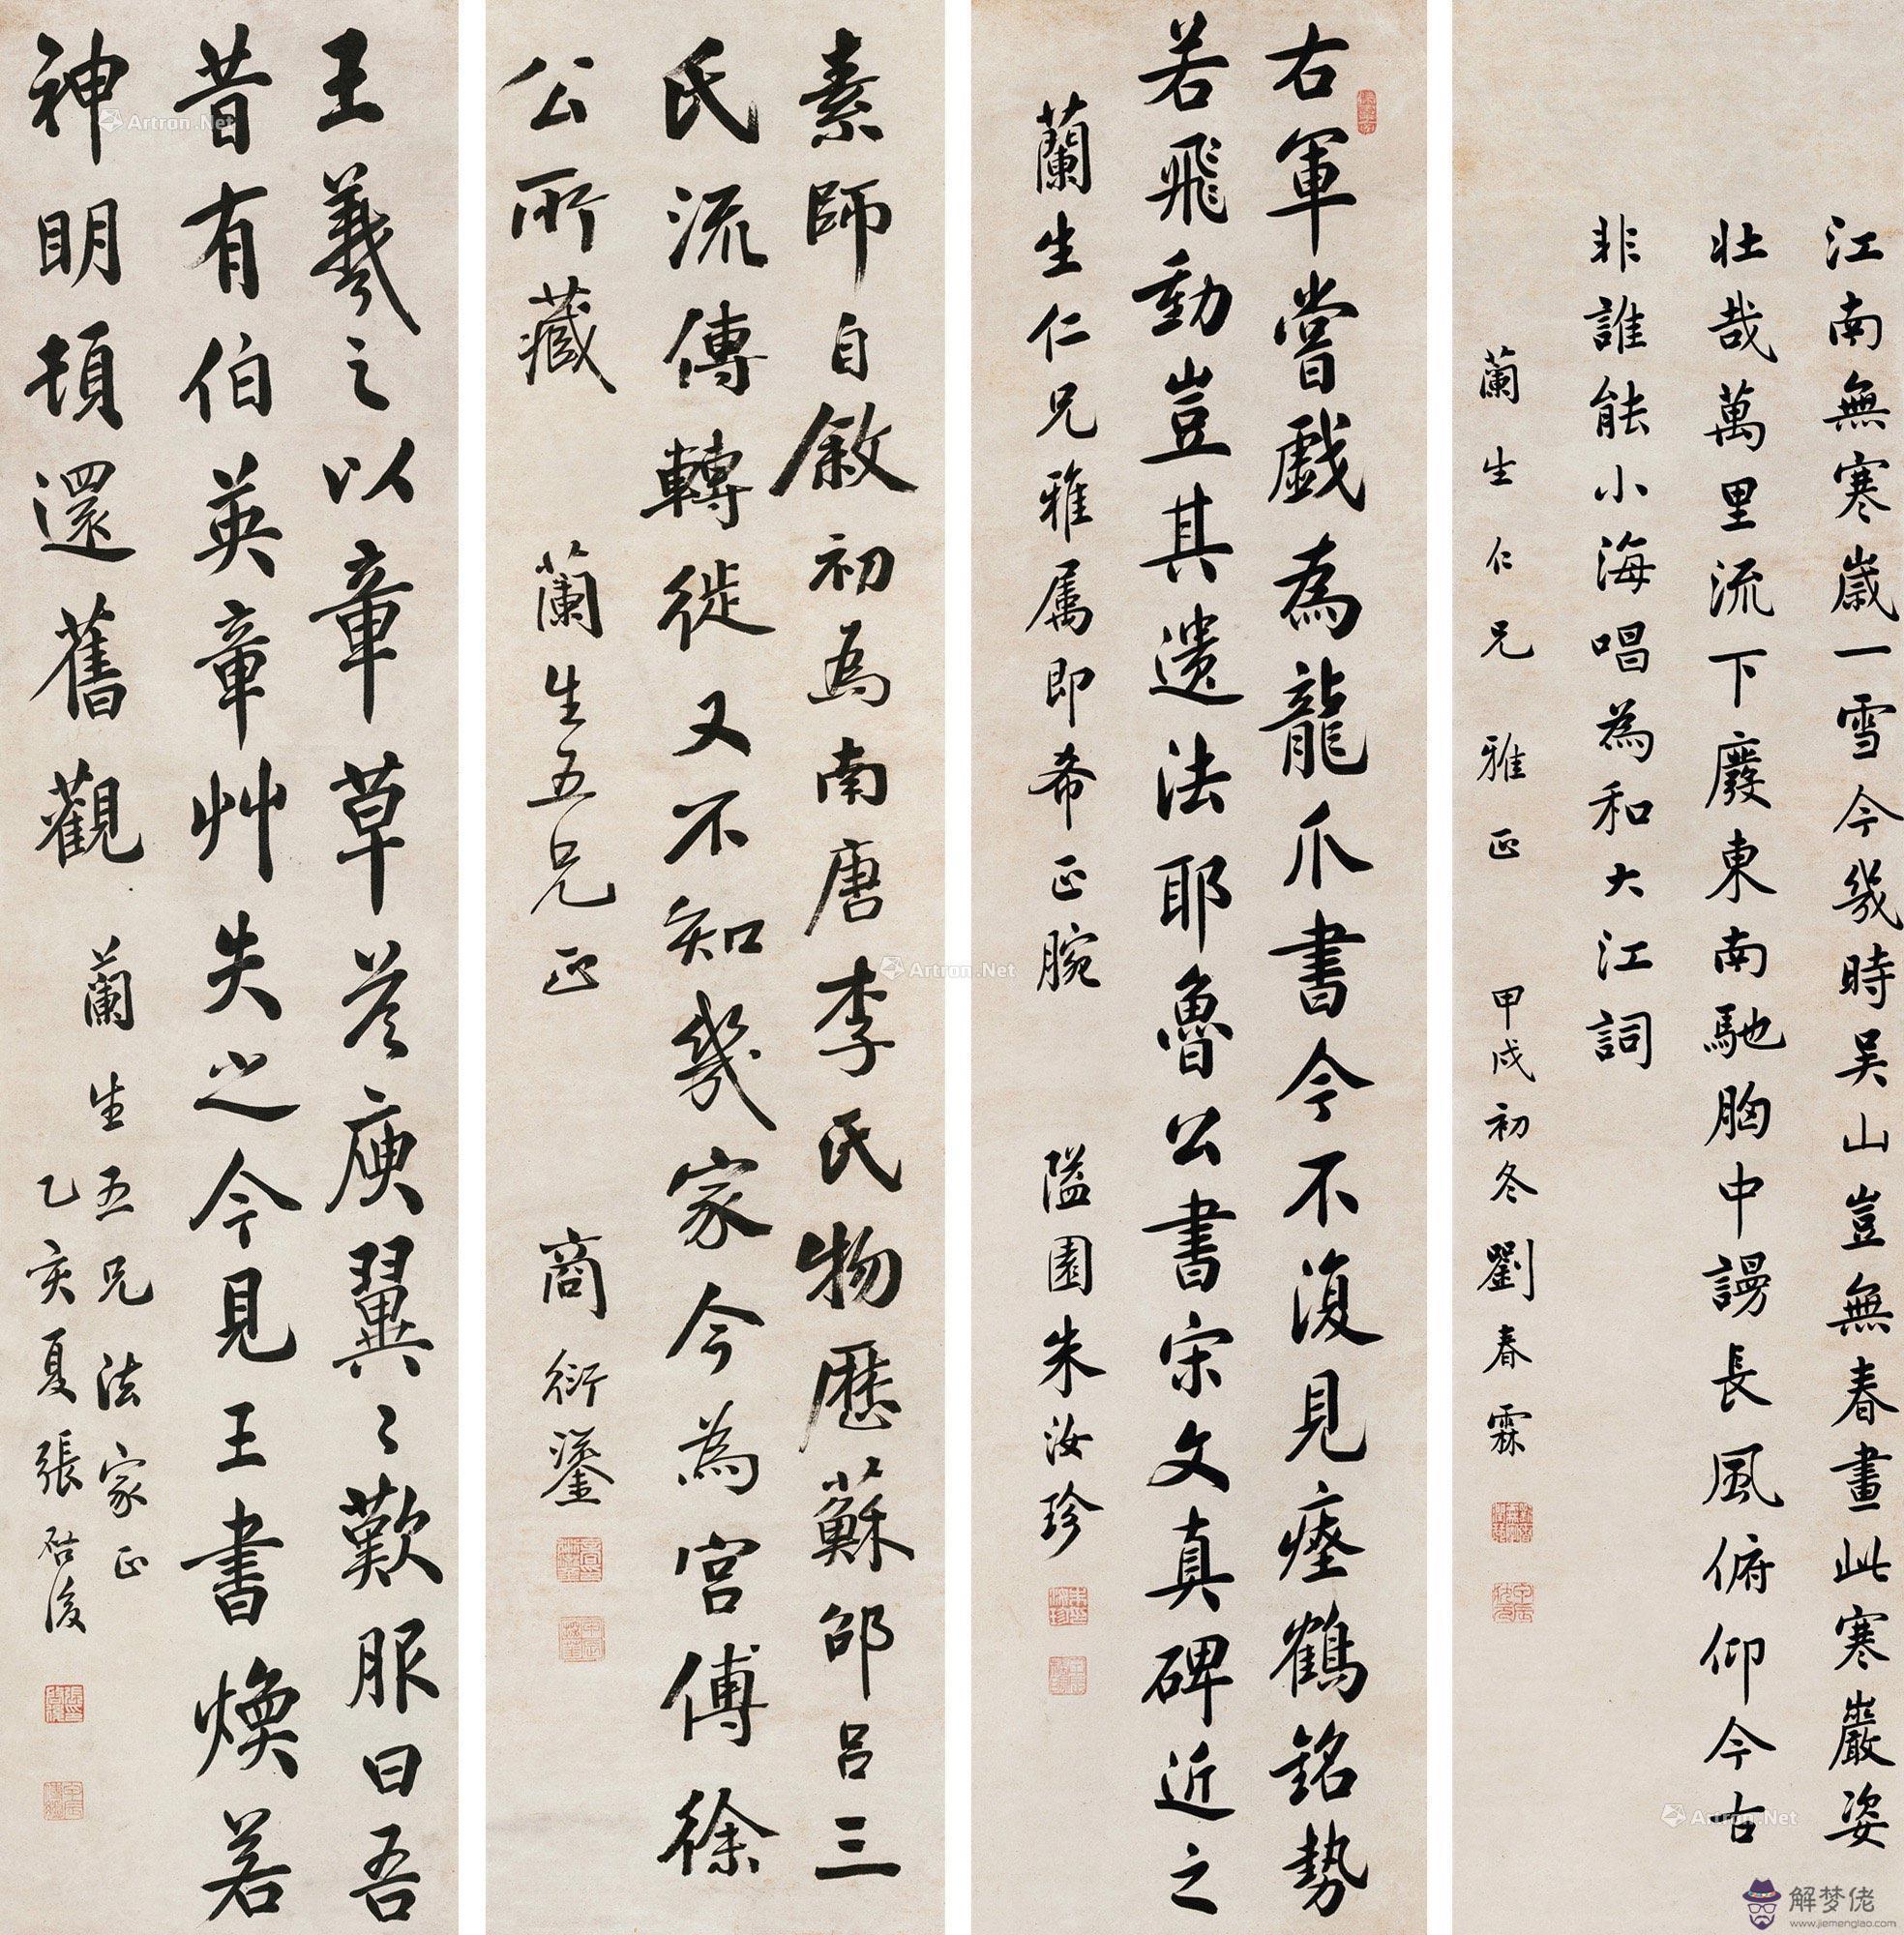 江南無寒歲一雪今幾時吴山豈無春畫此寒巖姿
壯哉萬里流下廢東南馳胸中謾長風俯仰今古
非誰能小海唱為和大江詞
蘭生仁兄雅正 甲戌初冬劉春霖
右軍嘗戲為龍爪書今不復見瘞鶴銘勢
若飛動豈其遺法耶魯公書宋文真碑近之
蘭生仁兄雅属即希正腕 隘園朱汝珍
素師自敘初為南唐李氏物歷蘇邵呂三
氏流傳轉徙又不知幾家今為宮傅徐
公所藏 蘭生五兄正 商衍鎏
王羲之以章草荅庾翼〻歎服曰吾
昔有伯英章艸失之今見王書煥若
神明頓還舊觀
蘭生五兄法家正
乙亥夏張启後
Artron.Net
Artron.Net
Artron.Net
解梦佬
www.jiemenglao.com